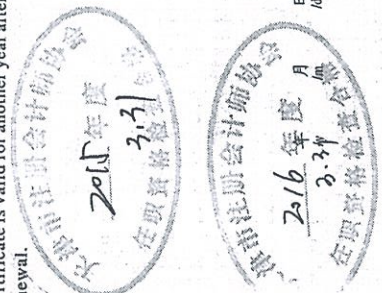 rtificate is valid for another year after
newal.
天津市注册会计师协会
2015年度
3.31
任职资格检查合格
天津市注册会计师协会
2016年度
3.31
月
任职资格检查合格